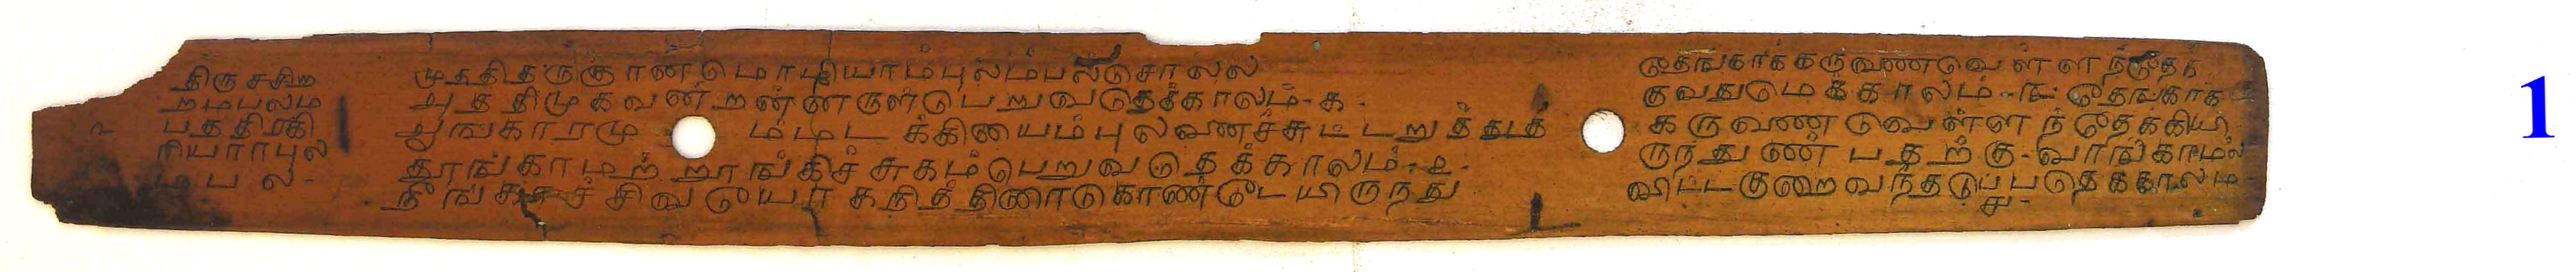 திருசசிற
றமபலம
பததிரகி
ரியாாபுல
மபல-
முததிதருஞானமொழியாம்புலம்பல்சொலல
அததிமுகவன்றன்னருள்பெறுவதெக்காலம்-க-
ஆங்காரமு ம்மடக்கியைம்புலவனச்சுட்டறுத்துத்
தூங்காமற்றூங்கிச்சுகம்பெறுவதெக்காலம்-உ-
நீங்காச்சிவயோகநித்திரைகொண்டேயிருந்து
தேங்காக்கருணைவெள்ளந்தேக்
குவதுமெக்காலம்-ங-தேங்காக்
கருணைவெள்ளந்தேக்கியி
ருந்துண்பதற்கு-வாங்காமல்
விட்டகுறைவந்தடுப்பதெக்காலம்
-ச-
1